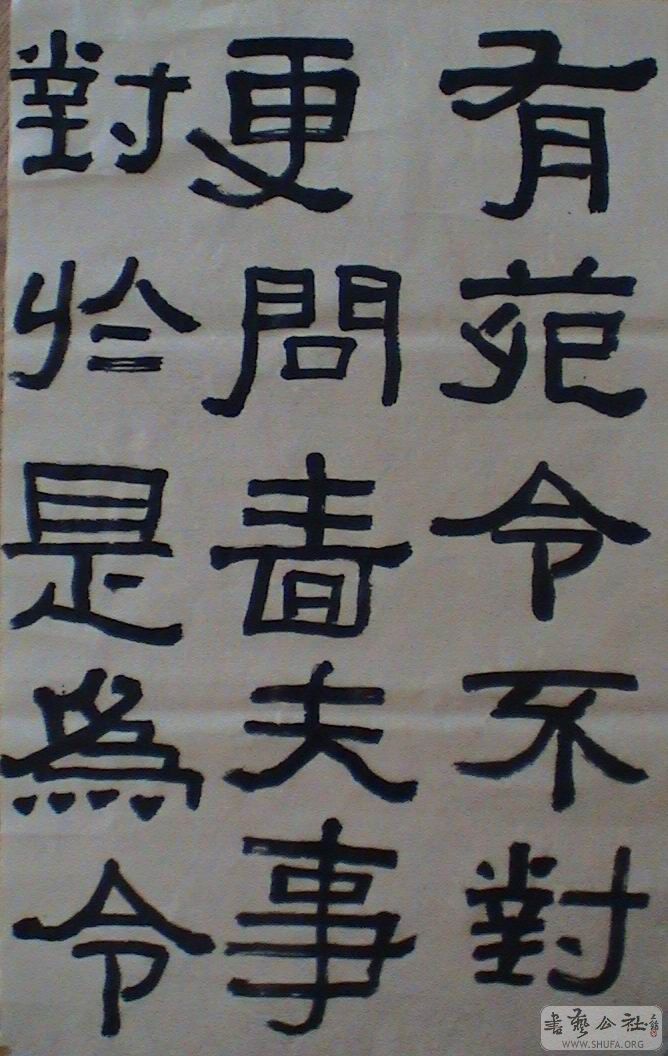 有苑令不對
更問嗇夫事
對於是為令
書藝公社
WWW.SHUFA.ORG